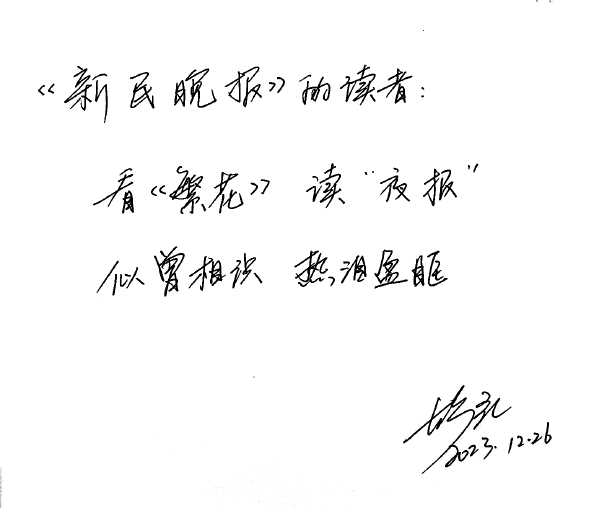 《新民晚报》的读者：
看《繁花》 读“夜报”
似曾相识 热泪盈眶
2023.12.26